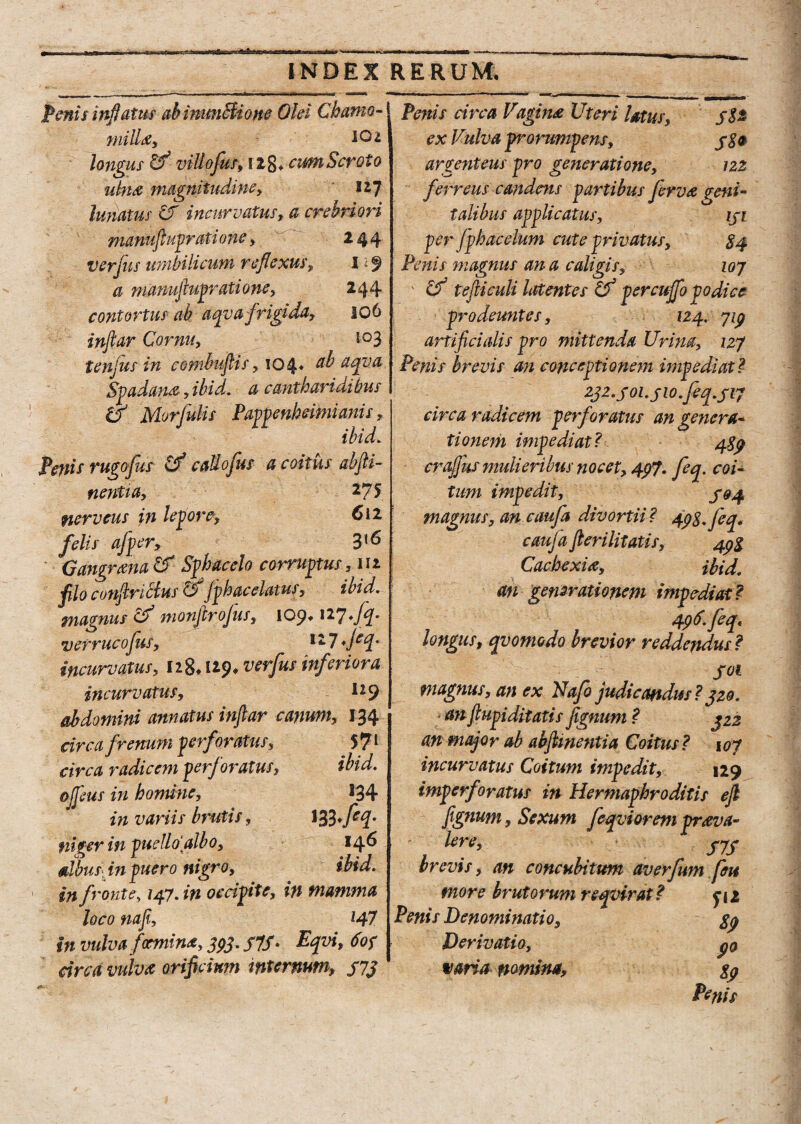 INDEX RERUM.
Penis inflatus ab inunctione Olei Chamo-
millæ, 102
longus & villosus, 128. cum Scroto
ulnæ magnitudine, 127
lunatus & incurvatus, a crebriori
manustupratione, 244
versus umbilicum reflexus, 119
a manustupratione, 244
contortus ab aqva frigida, 106
instar Cornu, 103
tensus in combustis, 104. ab aqva
Spadana, ibid. a cantharidibus
& Morsulis Pappenheimianis,
ibid.
Penis rugosus & callosus a coitus absti-
nentia, 275
nerveus in lepore, 612
felis asper, 316
Gangræna & Sphacelo corruptus, 112
filo constrictus & sphacelatus, ibid.
magnus & monstrosus, 109. 127. sq.
verrucosus, 127. seq.
incurvatus, 128. 129. versus inferiora
incurvatus, 129
abdomini annatus instar canum, 134
circa frenum perforatus, 571
circa radicem perforatus, ibid.
osseus in homine, 134
in variis brutis, 133. seq.
niger in puello albo, 146
albus in puero nigro, ibid.
in fronte, 147. in occipite, in mamma
loco nasi, 147
in vulva fœminæ, 393. 575. Eqvi, 605
circa vulvæ orificium internum, 573
Penis circa Vaginæ Uteri latus, 582
ex Vulva prorumpens, 580
argenteus pro generatione, 122
ferreus candens partibus servæ geni-
talibus applicatus, 151
per sphacelum cute privatus, 84
Penis magnus an a caligis, 107
& testiculi latentes & percusso podice
prodeuntes, 124. 719
artificialis pro mittenda Urina, 127
Penis brevis an conceptionem impediat?
232. 501. 510. seq. 517
circa radicem perforatus an genera-
tionem impediat? 489
crassus mulieribus nocet, 497. seq. coi-
tum impedit, 504
magnus, an causa divortii? 498. seq.
causa sterilitatis, 498
Cachexiæ, ibid.
an generationem impediat?
496. seq.
longus, qvomodo brevior reddendus?
501
magnus, an ex Naso judicandus? 320.
an stupiditatis signum? 322
an major ab abstinentia Coitus? 107
incurvatus Coitum impedit, 129
imperforatus in Hermaphroditis est
signum, Sexum seqviorem præva-
lere, 575
brevis, an concubitum aversum seu
more brutorum reqvirat? 512
Penis Denominatio, 89
Derivatio, 90
varia nomina, 89
Penis